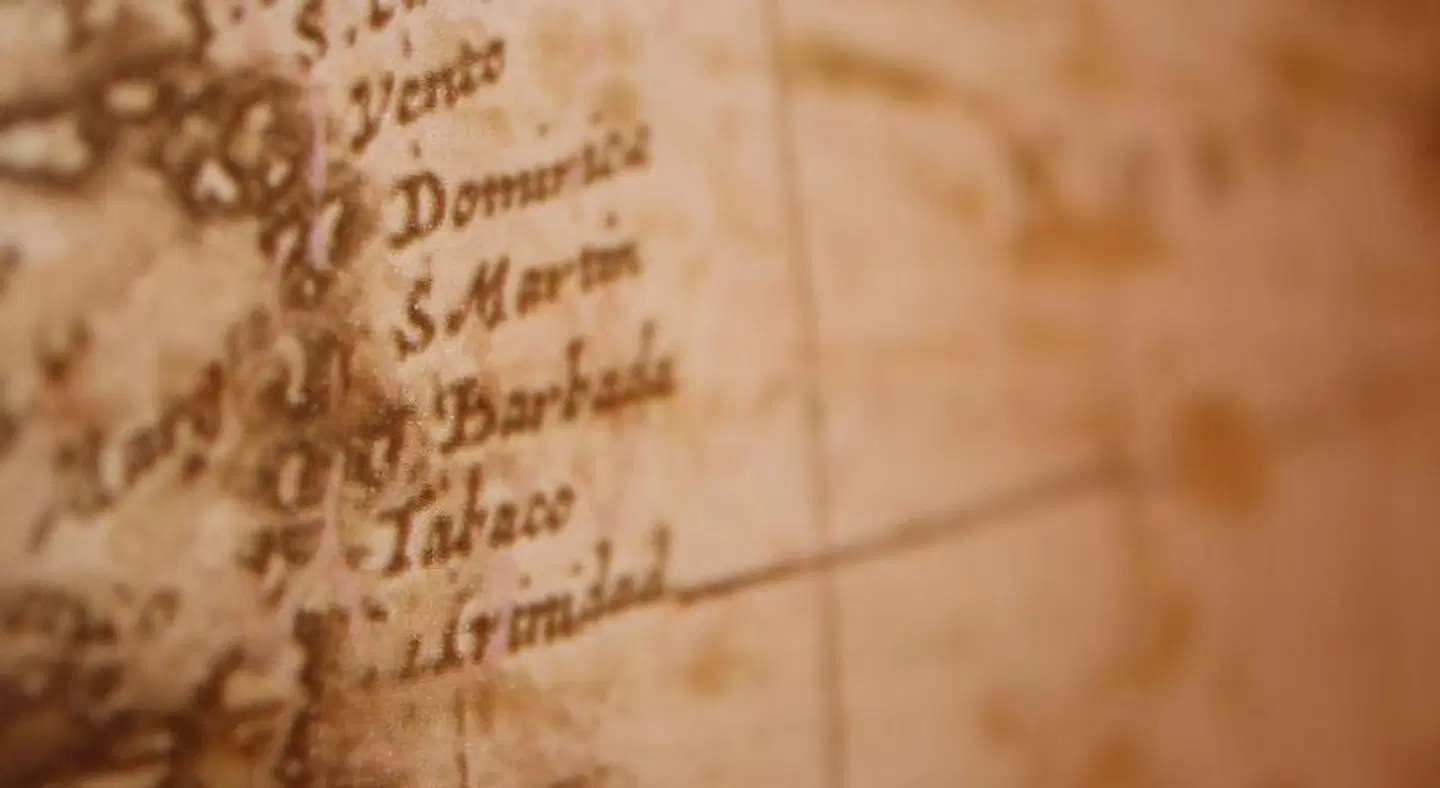 Vento
Dominica
S. Martin
Barbada
Tabaco
Trinidad